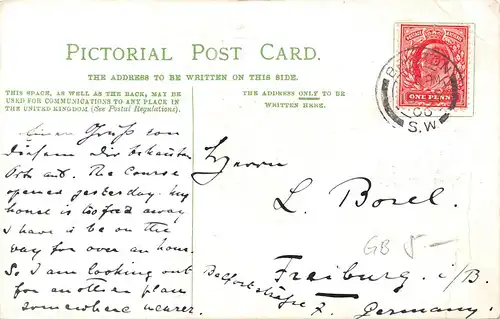 PICTORIAL POST CARD.
THE ADDRESS TO BE WRITTEN ON THIS SIDE.
THIS SPACE, AS WELL AS THE BACK, MAY BE
USED FOR COMMUNICATIONS TO ANY PLACE IN
THE UNITED KINGDOM (See Postal Regulations).
THE ADDRESS ONLY TO BE
WRITTEN HERE.
POSTAGE REVENUE
ONE PENNY
BRIXTON
06
S.W.
Einen Gruß von
diesem Dir bekannten
Ort aus. The Course
opened yesterday. My
home is too far away
I have to be on the
way for over an hour.
So I am looking out
for another place
somewhere nearer.
Herrn
L. Borel.
Freiburg i/B.
Belfortstraße 7.
Germany.
GB 5.-